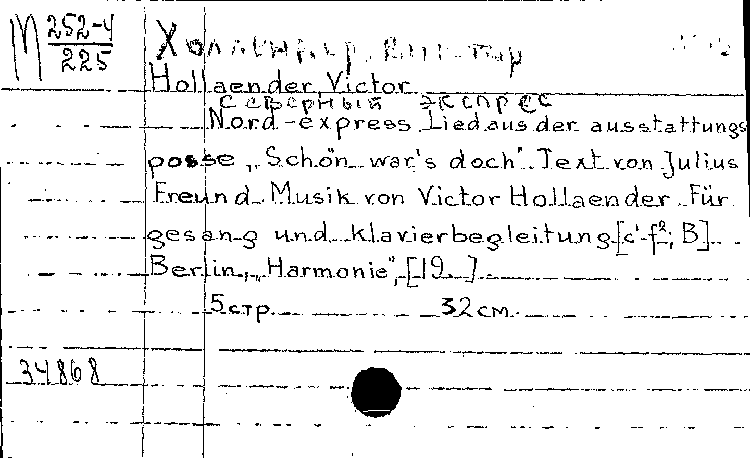 М 252-4
225
Холлендер, Виктор
Hollaender, Victor
северный экспрес
Nord-express Lied aus der ausstattungs
posse „Schön war's doch". Text von Julius
Freund. Musik von Victor Hollaender. Für
gesang und klavierbegleitung [c¹-f², B].
Berlin, „Harmonie", [19 ]
5 стр. 32 см.
34868